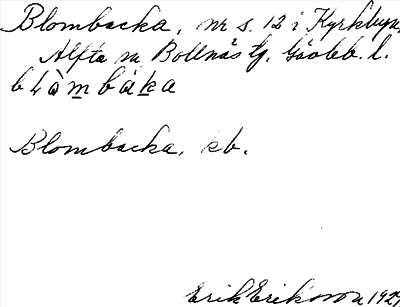 Blombacka, nr s. 12 i Kyrkbyn,
Alfta sn Bollnäs tg. Gävleb. l.
blòmbáka
Blombacka, kb.
Erik Erikson 1927